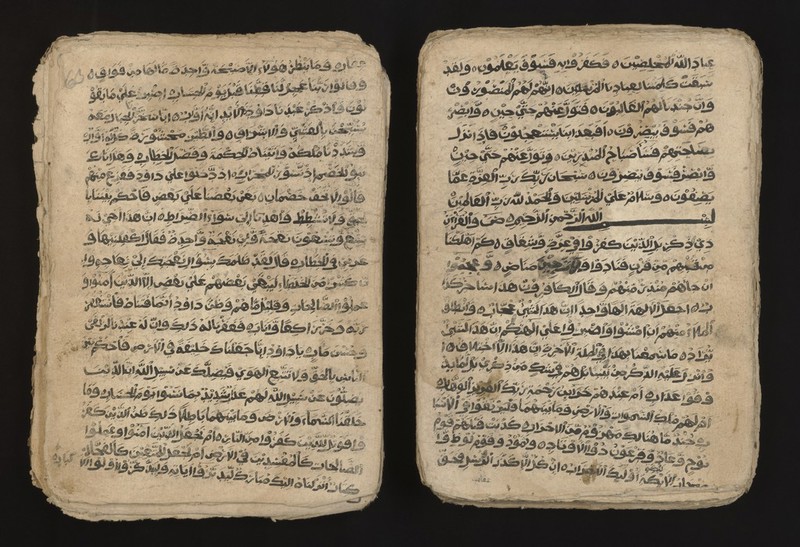 عباد الله المخلصين فكفروا به فسوف يعلمون ولقد
سبقت كلمتنا لعبادنا المرسلين انهم لهم المنصورون
وان جندنا لهم الغالبون فتول عنهم حتى حين وابصر
هم فسوف يبصرون افبعذابنا يستعجلون فاذا نزل
بساحتهم فساء صباح المنذرين وتول عنهم حتى حين
وابصر فسوف يبصرون سبحان ربك رب العزة عما
يصفون وسلام على المرسلين والحمد لله رب العالمين
بسم الله الرحمن الرحيم ص والقرآن
ذي الذكر بل الذين كفروا في عزة وشقاق كم اهلكنا
من قبلهم من قرن فنادوا ولات حين مناص وعجبوا
ان جاءهم منذر منهم وقال الكافرون هذا ساحر كذا
ب اجعل الالهة الها واحدا ان هذا لشيء عجاب وانطلق
الملا منهم ان امشوا واصبروا على الهتكم ان هذا لشيء
يراد ما سمعنا بهذا في الملة الاخرة ان هذا الا اختلاق ا
ءنزل عليه الذكر من بيننا بل هم في شك من ذكري بل لما يذ
وقوا عذاب ام عندهم خزائن رحمة ربك العزيز الوهاب
ام لهم ملك السموات والارض وما بينهما فليرتقوا في الاسبا
ب جند ما هنالك مهزوم من الاحزاب كذبت قبلهم قوم
نوح وعاد وفرعون ذو الاوتاد وثمود وقوم لوط وا
صحاب الايكة اولئك الاحزاب ان كل الا كذب الرسل فحق
عقاب وما ينظر هؤلاء الا صيحة واحدة ما لها من فواق
وقالوا ربنا عجل لنا قطنا قبل يوم الحساب اصبر على ما يقو
لون واذكر عبدنا داود ذا الايد انه اواب انا سخرنا الجبال معه
يسبحن بالعشي والاشراق والطير محشورة كل له اواب
وشددنا ملكه واتيناه الحكمة وفصل الخطاب وهل اتاك
نبؤ الخصم اذ تسوروا المحراب اذ دخلوا على داود ففزع منهم
قالوا لا تخف خصمان بغى بعضنا على بعض فاحكم بيننا با
لحق ولا تشطط واهدنا الى سواء الصراط ان هذا اخي له
تسع وتسعون نعجة ولي نعجة واحدة فقال اكفلنيها و
عزني في الخطاب قال لقد ظلمك بسؤال نعجتك الى نعاجه وا
ن كثيرا من الخلطاء ليبغي بعضهم على بعض الا الذين امنوا و
عملوا الصالحات وقليل ما هم وظن داود انما فتناه فاستغفر
ربه وخر راكعا واناب فغفرنا له ذلك وان له عندنا لزلفى
وحسن ماب يا داود انا جعلناك خليفة في الارض فاحكم بين
الناس بالحق ولا تتبع الهوى فيضلك عن سبيل الله ان الذين
يضلون عن سبيل الله لهم عذاب شديد بما نسوا يوم الحساب وما
خلقنا السماء والارض وما بينهما باطلا ذلك ظن الذين كفر
وا فويل للذين كفروا من النار ام نجعل الذين امنوا وعملوا
الصالحات كالمفسدين في الارض ام نجعل المتقين كالفجار
كتاب انزلناه اليك مبارك ليدبروا اياته وليتذكر اولوا الا